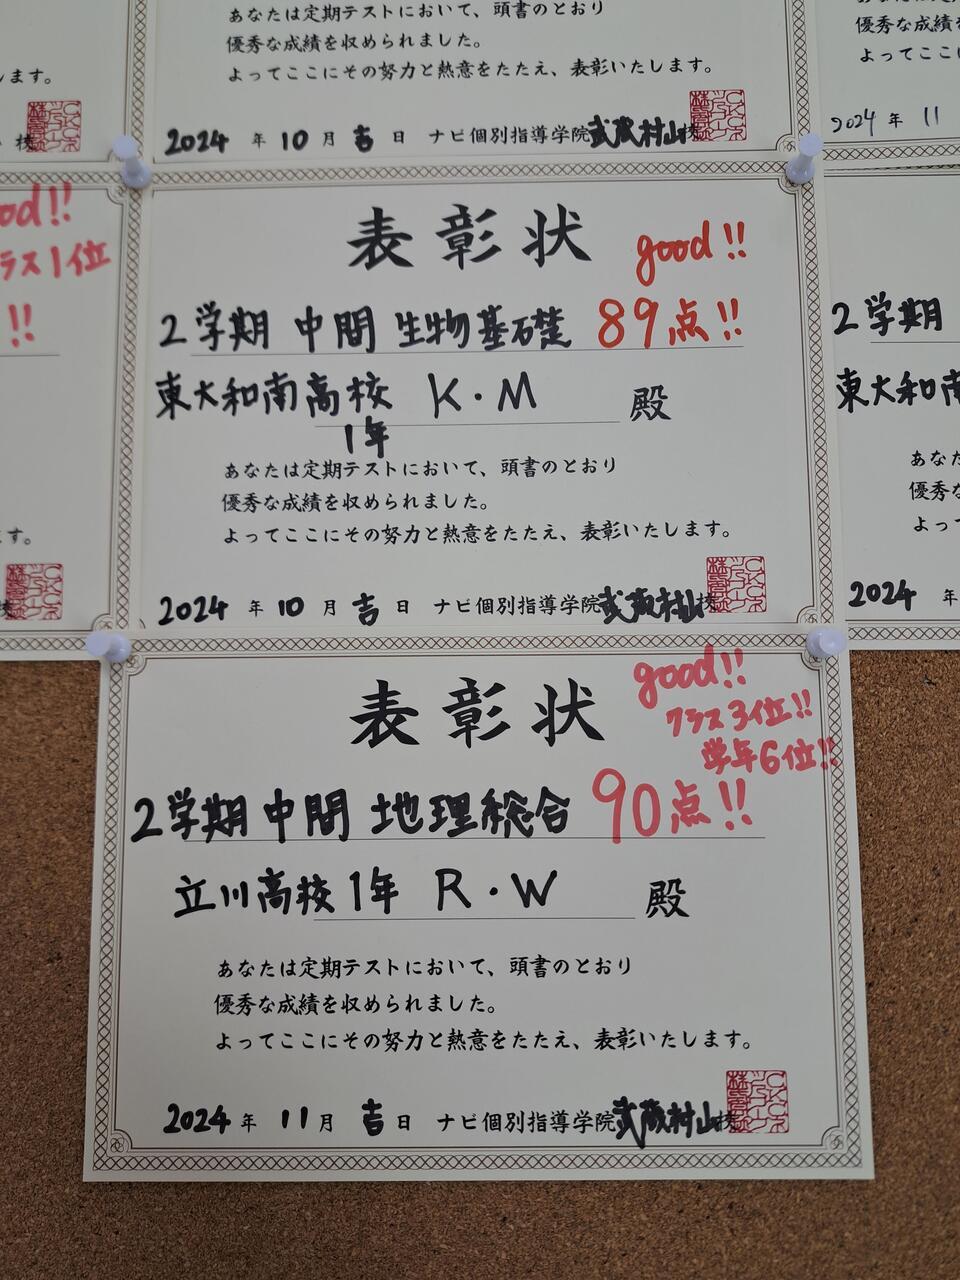 あなたは定期テストにおいて、頭書のとおり
優秀な成績を収められました。
よってここにその努力と熱意をたたえ、表彰いたします。
2024 年 10 月 吉 日 ナビ個別指導学院武蔵村山校
ります。
校
2024 年 11
ood!!
ラス1位
!!
す。
表彰状
good!!
2学期 中間 生物基礎 89点!!
東大和南高校 K・M 殿
1年
あなたは定期テストにおいて、頭書のとおり
優秀な成績を収められました。
よってここにその努力と熱意をたたえ、表彰いたします。
2024 年 10 月 吉 日 ナビ個別指導学院武蔵村山校
2学期
東大和南
あなた
優秀な
よって
2024 年
表彰状
good!!
クラス3位!!
学年6位!!
2学期 中間 地理総合 90点!!
立川高校1年 R・W 殿
あなたは定期テストにおいて、頭書のとおり
優秀な成績を収められました。
よってここにその努力と熱意をたたえ、表彰いたします。
2024 年 11 月 吉 日 ナビ個別指導学院武蔵村山校